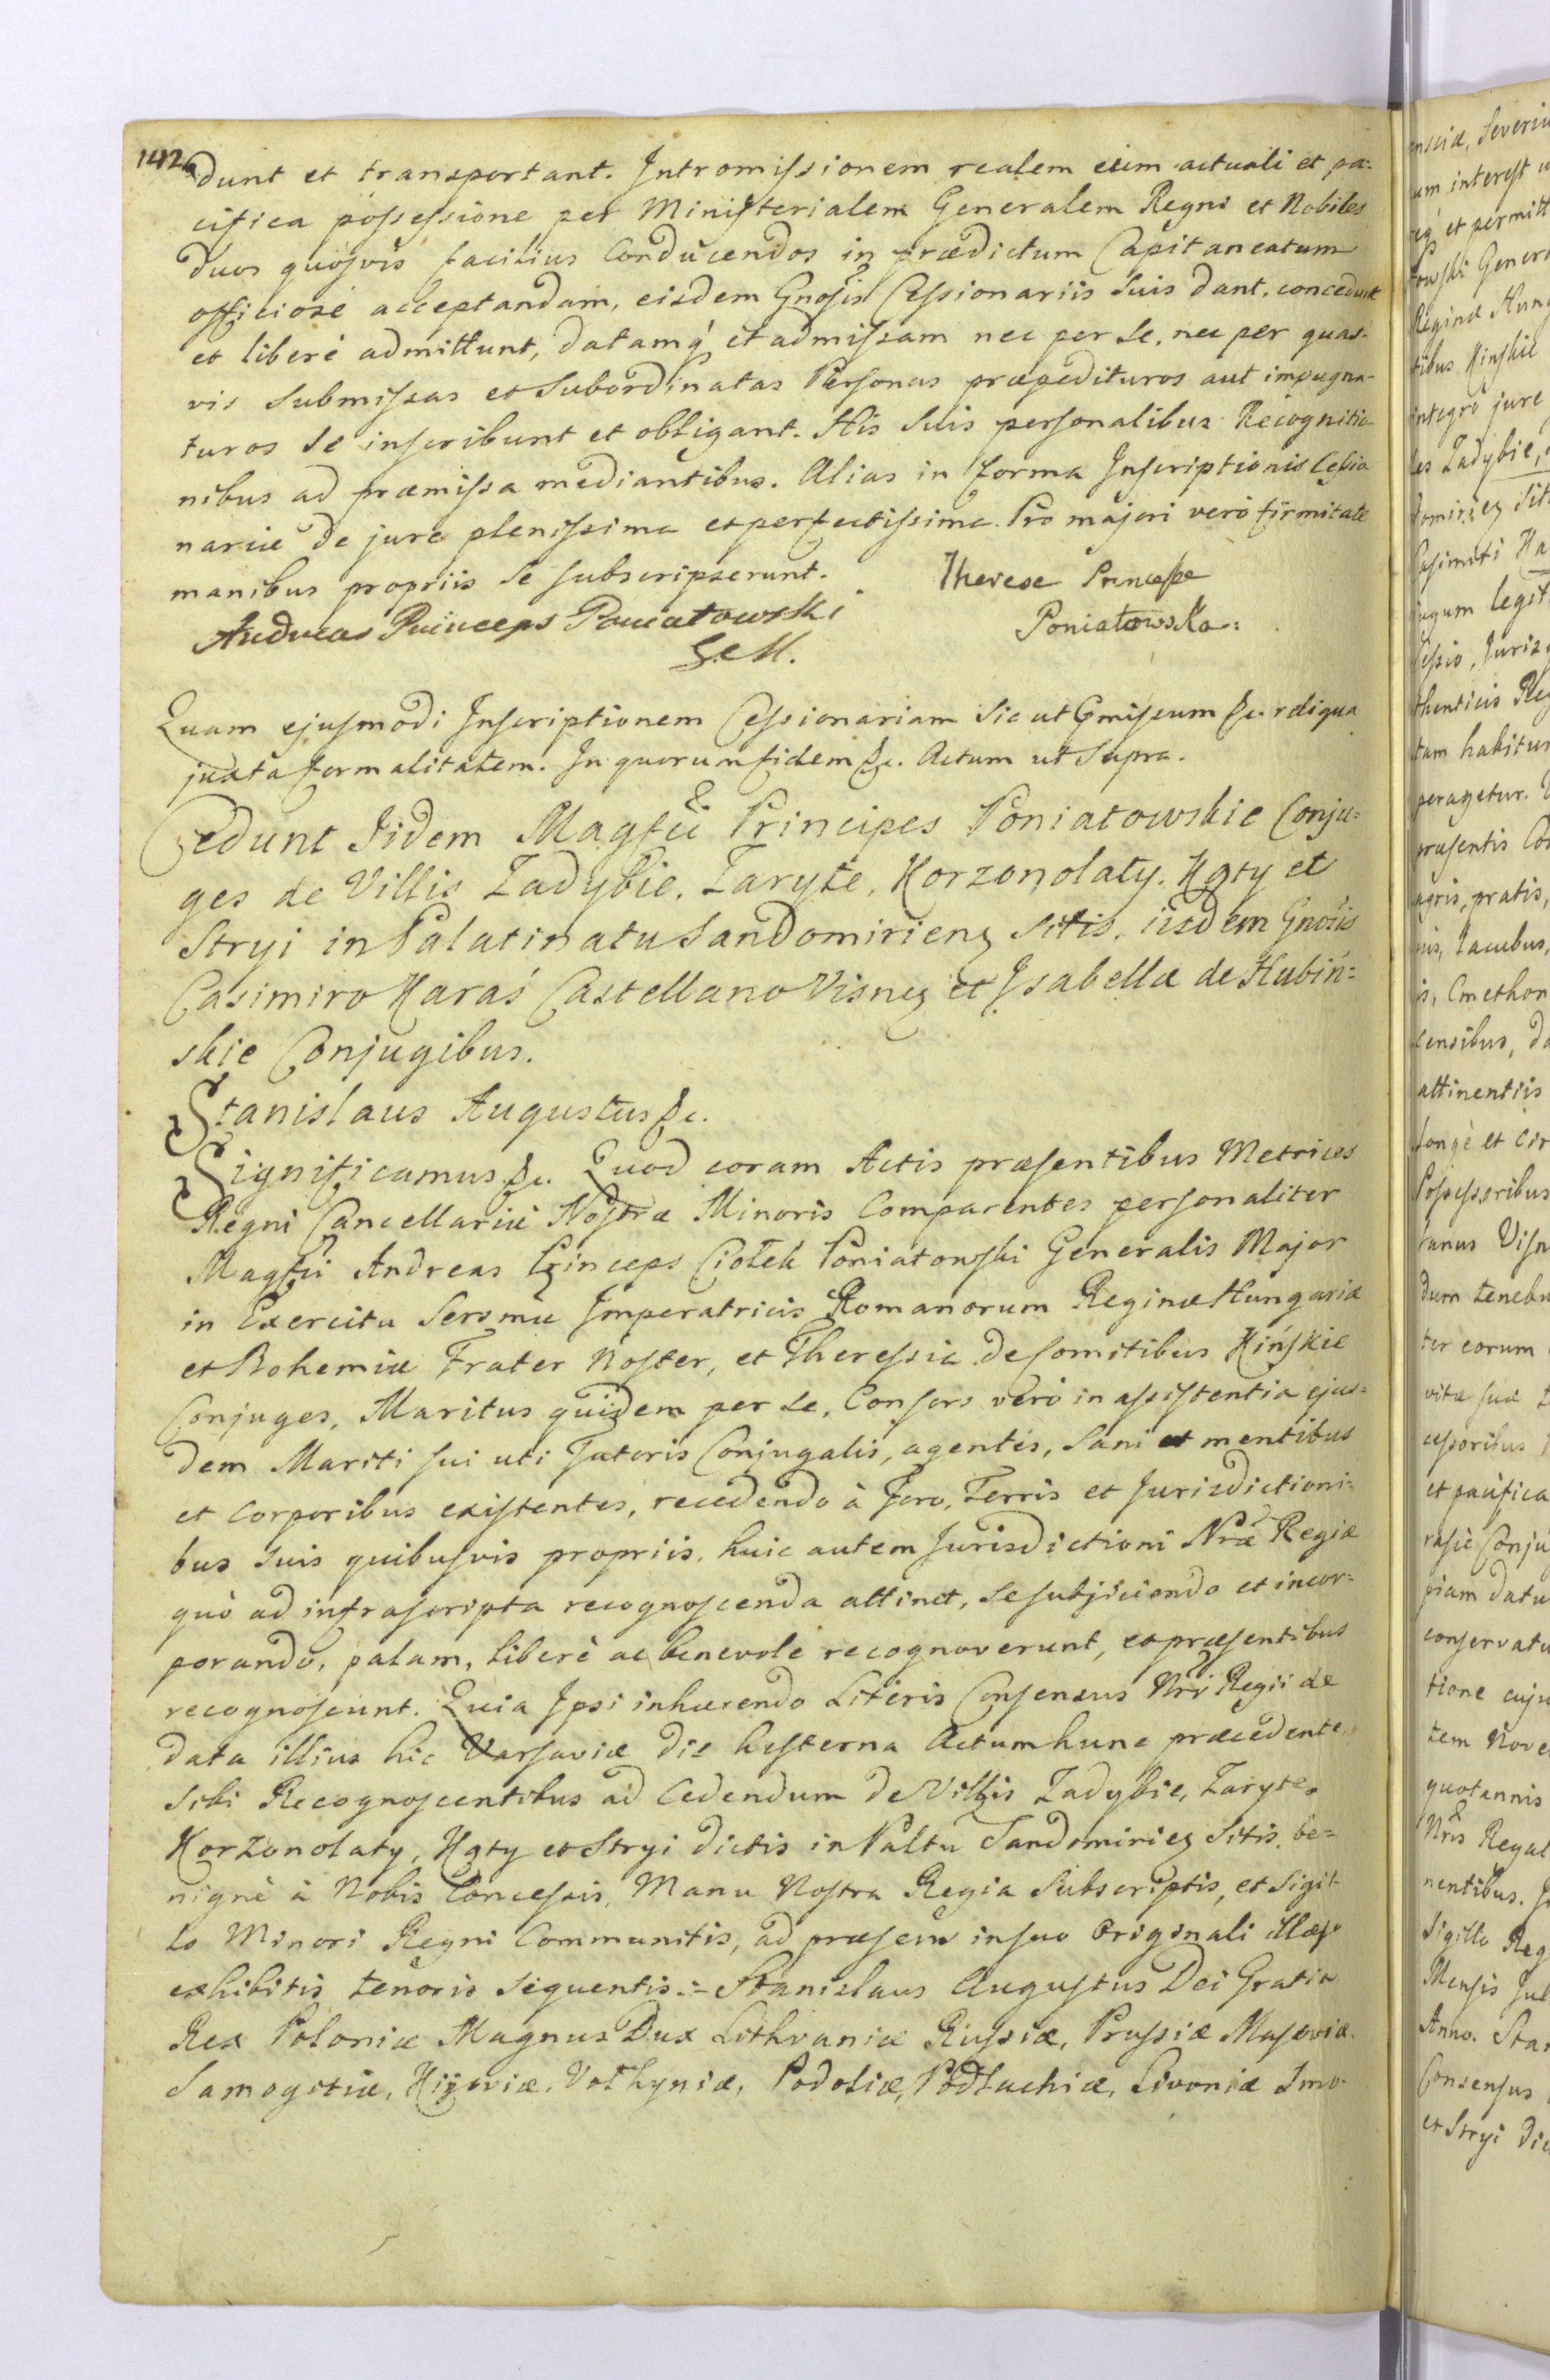 142
dunt et transportant. Intromissionem realem cum actuali et pa-
cifica possessione per Ministerialem Generalem Regni et Nobiles
duos quosvis facilius Conducendos in prædictum Capitaneatum
officiose acceptandam, eisdem Gnosis Cessionariis suis dant, concedunt
et liberè admittunt, datamq́ et admissam nec per se, nec per quas-
vis submissas et subordinatas Personas præpedituros aut impugna-
turos se inscribunt et obligant. His suis personalibus Recognitio-
nibus ad præmissa mediantibus. Alias in forma Inscriptionis Cessio
nariæ de jure plenissima et perfectissima. Pro majori verò firmitate
manibus propriis se subscripserunt. Therese Princesse
Andreas Princeps Poniatowski Poniatowska:
G.M.
Quam ejusmodi Inscriptionem Cessionariam sic ut Gmissum &c. reliqua
juxta formalitatem. In quorum fidem &c. Actum ut supra.
Cedunt Iidem Magfci Principes Poniatowskie Conju=
ges de Villis Zadybie, Zaryte, Korzonolaty, Kąty et
Stryi in Palatinatu Sandomirieng sitis, iisdem Gnosis
Casimiro Karaś Castellano Visneg et Isabella de Hubiń=
skie Conjugibus.
Stanislaus Augustus &c.
Significamus &c. Quod coram Actis præsentibus Metrices
Regni Cancellariæ Nostræ Minoris Comparentes personaliter
Magfci Andreas Princeps Ciołek Poniatowski Generalis Major
in Exercitu Sersmæ Imperatricis Romanorum Reginæ Hungariæ
et Bohemiæ Frater Noster, et Theressia de Comitibus Kińskie
Conjuges, Maritus quidem per se, Consors verò in assistentia ejus=
dem Mariti sui uti Tutoris Conjugalis, agentes, sani et mentibus
et Corporibus existentes, recedendo à Foro, Terris et Jurisdictioni=
bus suis quibusvis propriis, huic autem Jurisdictioni Nræ Regiæ
quò ad infrascripta recognoscenda attinet, se subjiciendo et incor=
porando, palam, liberè ac benevole recognoverunt, et præsentibus
recognoscunt. Quia Ipsi inhærendo Literis Consensus Nri Regii de
data illius hic Varsaviæ die hesterna Actum hunc præcedente
sibi Recognoscentibus ad Cedendum de Villis Zadybie, Zaryte,
Korzonolaty, Kąty et Stryi dictis in Palttu Sandomirieg Sitis, be=
nignè à Nobis Concessis, Manu Nostra Regia subscriptis, et Sigil-
lo Minori Regni Communitis, ad præsens in suo Originali illæso
exhibitis tenoris sequentis:= Stanislaus Augustus Dei Gratia
Rex Poloniæ Magnus Dux Lithvaniæ Russiæ, Prussiæ Masoviæ
Samogitiæ, Kijoviæ, Volhyniæ, Podoliæ, Podlachiæ, Livoniæ Smo-